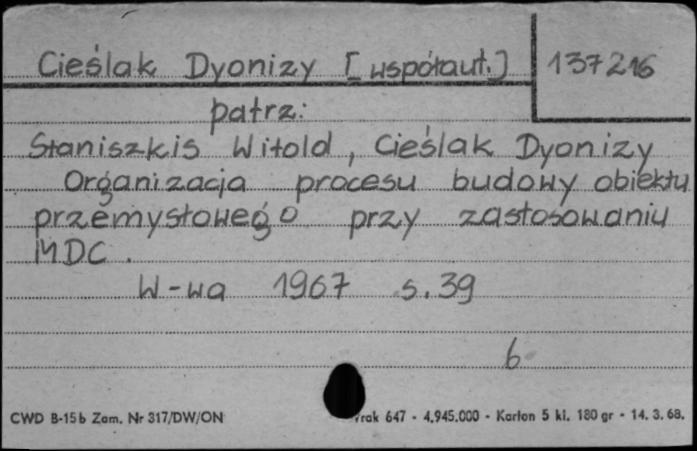 Cieślak Dyonizy [współaut.] 137216
patrz:
Staniszkis Witold, Cieślak Dyonizy
Organizacja procesu budowy obiektu
przemysłowego przy zastosowaniu
MDC.
W-wa 1967 s.39
6
CWD B-15b Zam. Nr 317/DW/ON rak 647 - 4.945.000 - Karton 5 kl. 180 gr - 14. 3. 68.